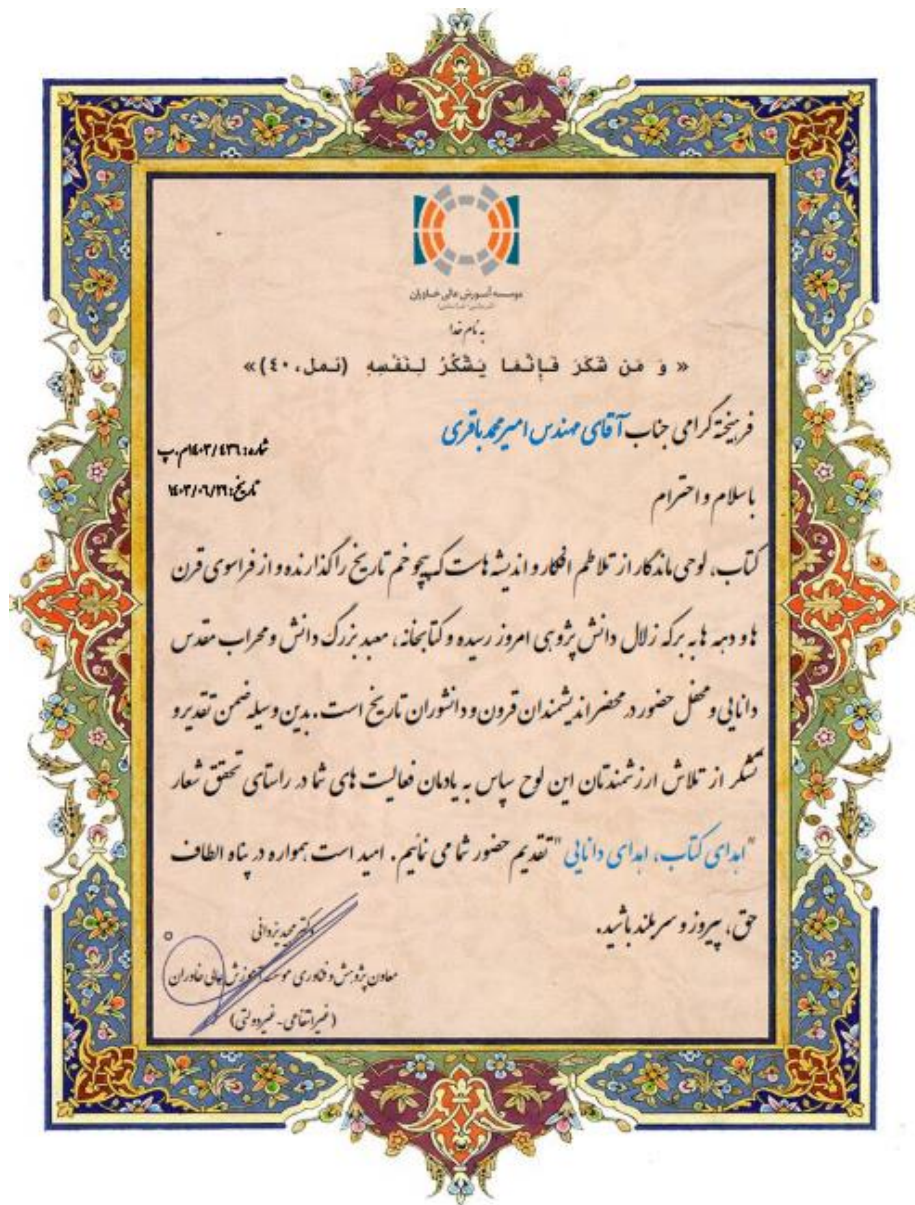 موسسه آموزش عالی خاوران
به نام خدا
« و مَن شَكَرَ فَإِنَّمَا يَشْكُرُ لِنَفْسِهِ (نمل،٤٠)»
فرهیخته گرامی جناب آقای مهندس امیرمحمد باقری
شماره: ۱۴۰۳/۴۳۶/م.پ
تاریخ: ۱۴۰۳/۰۶/۲۶
باسلام و احترام
کتاب، لوحی ماندگار از تلاطم افکار و اندیشه هاست که پیچ و خم تاریخ را گذارنده و از فراسوی قرن
ها و دهه ها به برکه زلال دانش پژوهی امروز رسیده و کتابخانه، معبد بزرگ دانش و محراب مقدس
دانایی و محفل حضور در محضر اندیشمندان قرون و دانشوران تاریخ است. بدین وسیله ضمن تقدیر و
تشکر از تلاش ارزشمندتان این لوح سپاس به یادمان فعالیت های شما در راستای تحقق شعار
"اهدای کتاب، اهدای دانایی" تقدیم حضور شما می نمائیم. امید است همواره در پناه الطاف
حق، پیروز و سربلند باشید.
دکتر مجید یزدانی
معاون پژوهش و فناوری موسسه آموزش عالی خاوران
(غیرانتفاعی - غیردولتی)